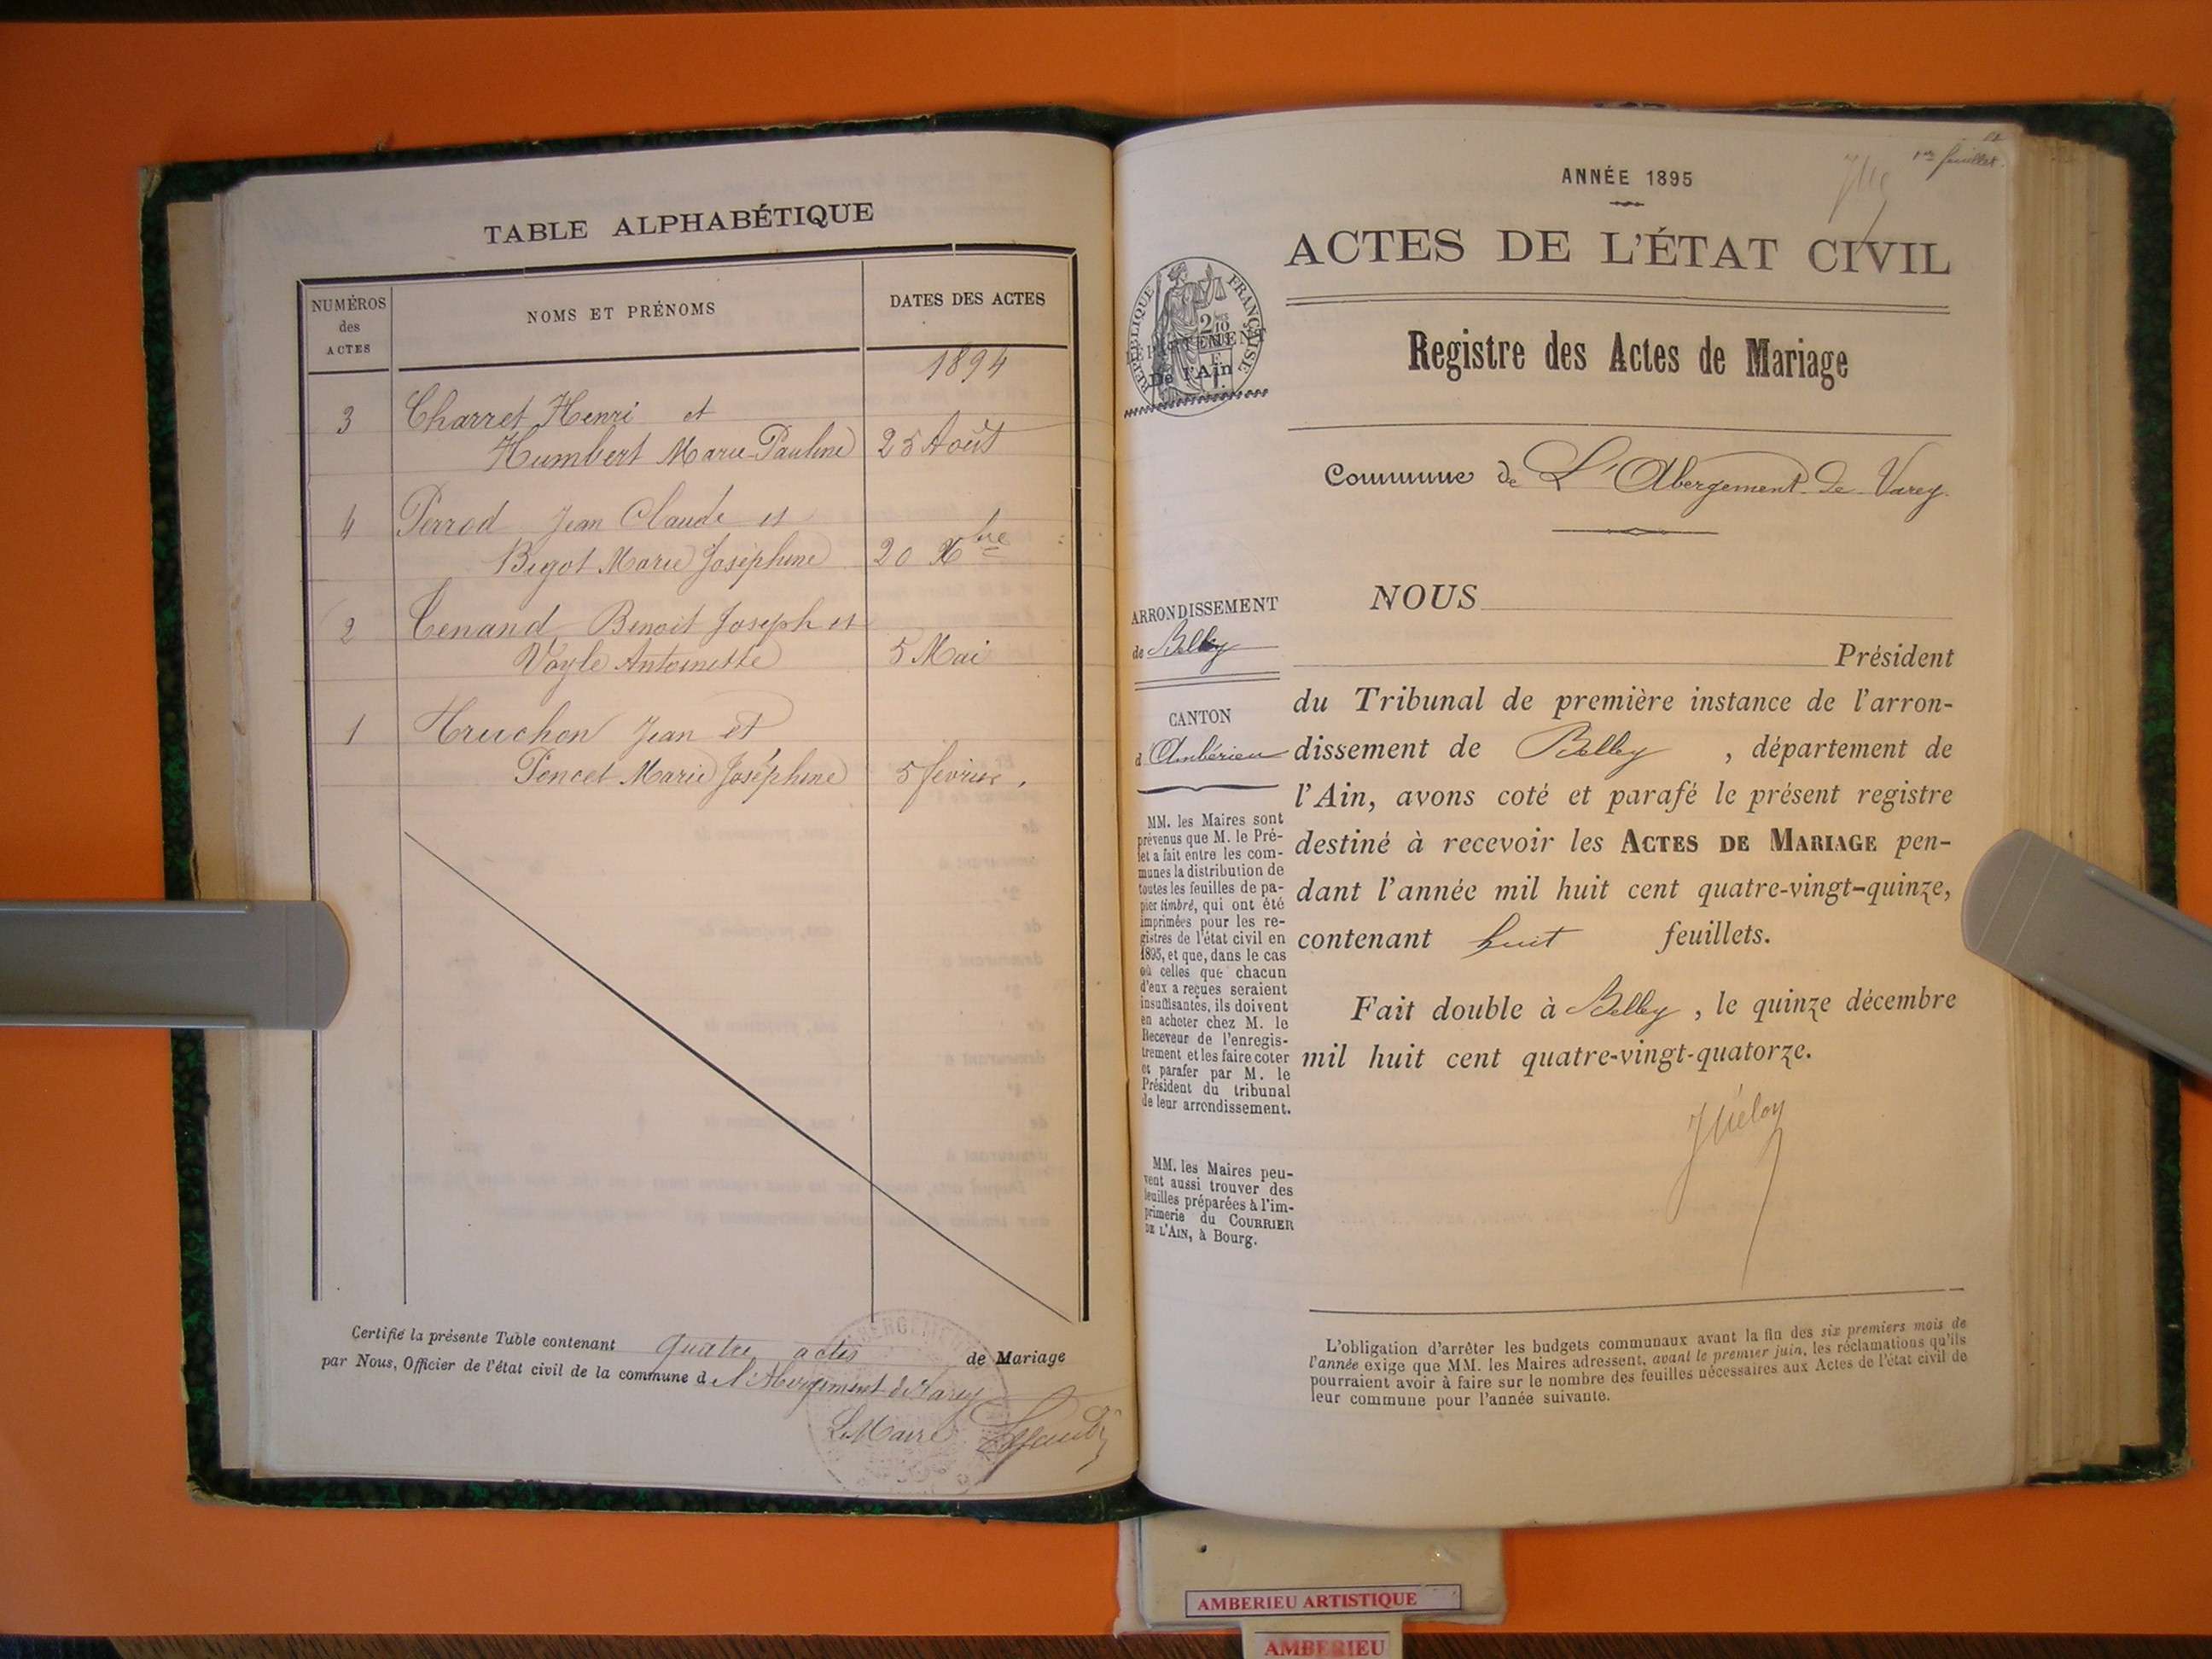 TABLE ALPHABÉTIQUE
NUMÉROS
des
ACTES
NOMS ET PRÉNOMS
DATES DES ACTES
1894
3 Charret Henri et
Humbert Marie-Pauline 25 Août
4 Perrod Jean Claude et
Bigot Marie Joséphine 20 Xbre
2 Tenand Benoit Joseph et
Vayle Antoinette 5 Mai
1 Truchon Jean et
Poncet Marie Joséphine 5 février.
Certifié la présente Table contenant quatre actes de Mariage
par Nous, Officier de l'état civil de la commune d l'Abergement de Varey
Le Maire
1er feuillet.
ANNÉE 1895
ACTES DE L'ÉTAT CIVIL
RÉPUBLIQUE FRANÇAISE
2/10
De l'Ain
Registre des Actes de Mariage
Commune de L'Abergement-de-Varey.
ARRONDISSEMENT
de Belley
CANTON
d'Ambérieu
MM. les Maires sont
prévenus que M. le Pré-
fet a fait entre les com-
munes la distribution de
toutes les feuilles de pa-
pier timbré, qui ont été
imprimées pour les re-
gistres de l'état civil en
1895, et que, dans le cas
où celles que chacun
d'eux a reçues seraient
insuffisantes, ils doivent
en acheter chez M. le
Receveur de l'enregis-
trement et les faire coter
et parafer par M. le
Président du tribunal
de leur arrondissement.
MM. les Maires peu-
vent aussi trouver des
feuilles préparées à l'im-
primerie du COURRIER
DE L'AIN, à Bourg.
NOUS
Président
du Tribunal de première instance de l'arron-
dissement de Belley , département de
l'Ain, avons coté et parafé le présent registre
destiné à recevoir les ACTES DE MARIAGE pen-
dant l'année mil huit cent quatre-vingt-quinze,
contenant huit feuillets.
Fait double à Belley , le quinze décembre
mil huit cent quatre-vingt-quatorze.
L'obligation d'arrêter les budgets communaux avant la fin des six premiers mois de
l'année exige que MM. les Maires adressent, avant le premier juin, les réclamations qu'ils
pourraient avoir à faire sur le nombre des feuilles nécessaires aux Actes de l'état civil de
leur commune pour l'année suivante.
AMBERIEU ARTISTIQUE
AMBERIEU